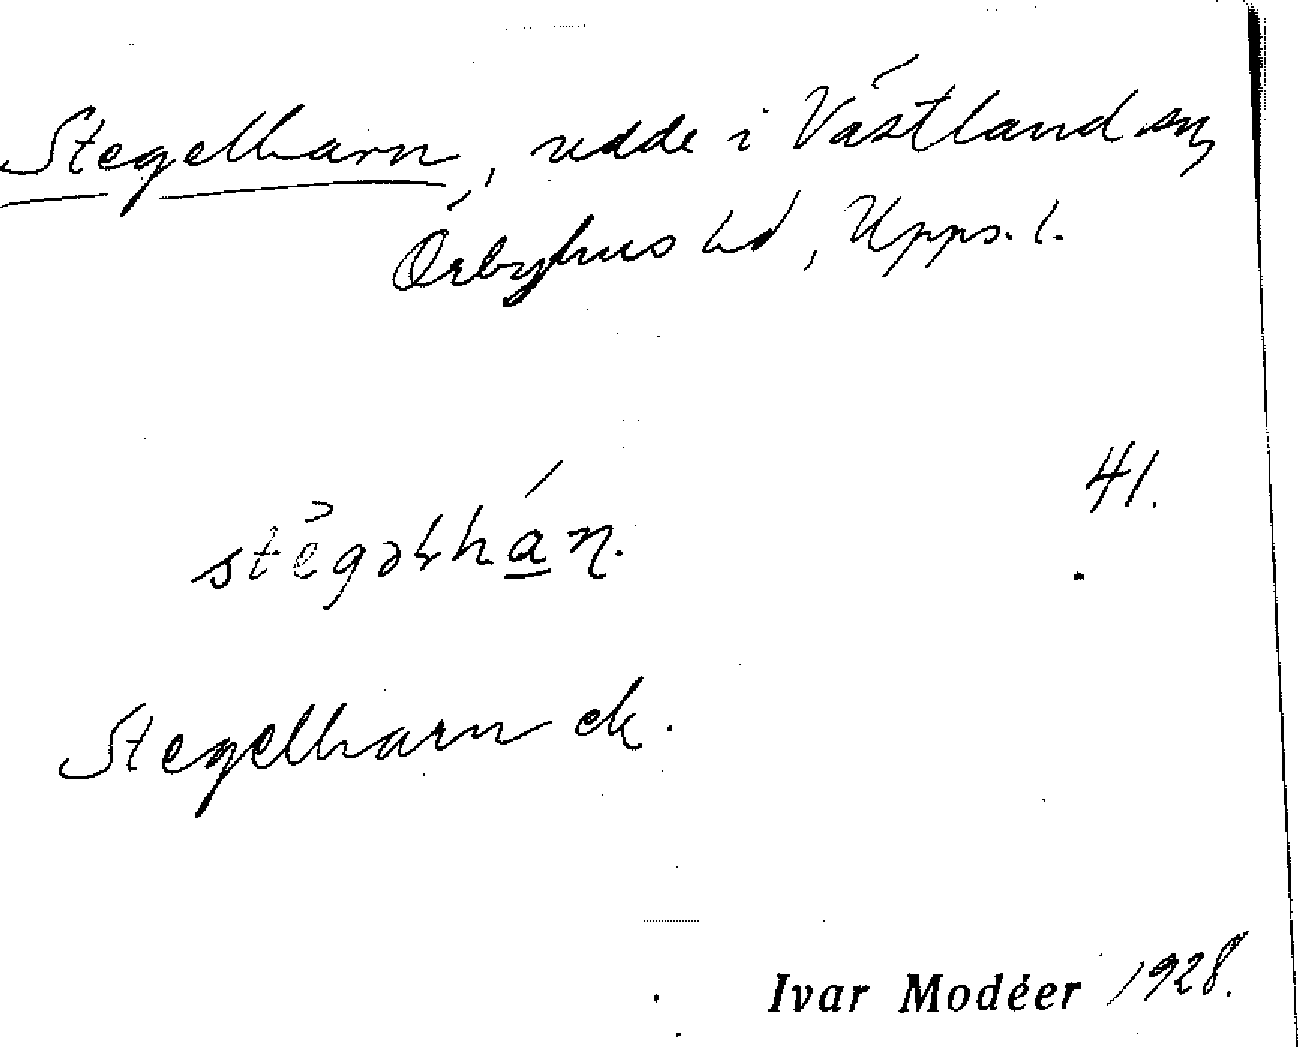 Stegelharn, udde i Västland sn,
Örbyhus hd, Upps. l.
41.
Stegelharn ek.
Ivar Modéer 1928.